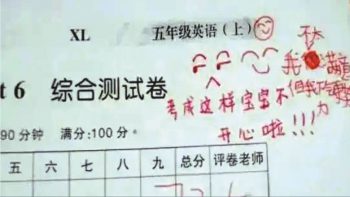 XL 五年级英语(上)
t 6 综合测试卷
90分钟 满分:100分
五 六 七 八 九 总分 评卷老师
考成这样宝宝不
开心啦!!!
不太
我 满意